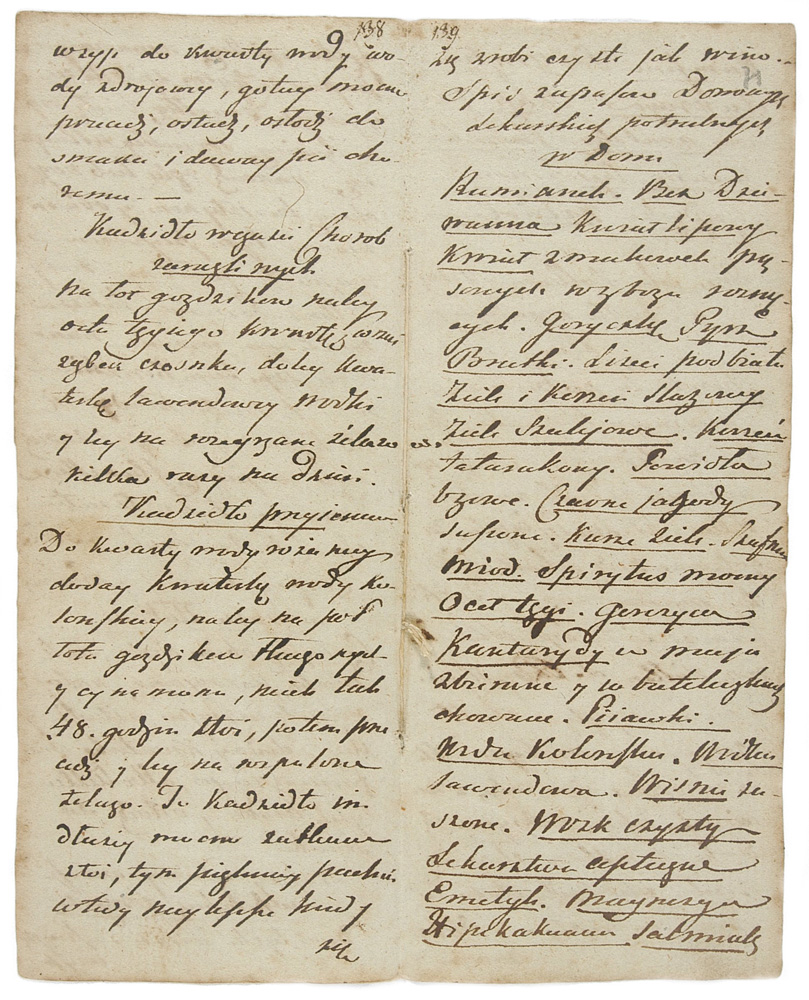 138
wsyp do kwarty wody wo-
dy zdrojowey, gotuy mocno
przecedź, ostudź, osłodź do
smaku i daway pić cho-
remu. —
Kadzidło w czasie Chorob
zaraźliwych
Na łot goździkow naley
octu tęgiego kwartę, wrzuć
ząbek czosnku, doley kwa-
terkę lawendowey wodki
y ley na rozegrzane żelazo
kilka razy na dzień.
Kadzidło przyiemne
Do kwarty wody różaney
doday kwaterkę wody ko-
lońskiey, naley na puł
łota goździkow tłuczonych
y cynamonu, niech tak
48. godzin stoi, potem prze
cedź y ley na rozpalone
żelazo. To Kadzidło im
dłużey mocno zatkane
stoi, tym piękniey pachnie
wtedy naylepsze kiedy
się
139
się zrobi czyste jak wino.
Spis zapasow Domowey
Lekarskiey potrzebnych
w Domu
Rumianek. Bez Dzie-
wanna Kwiat lipowy
Kwiat z makowek pu-
stych w zbożu rosną-
cych. Goryczkę Pyrz
Bratki. Liści podbiału
Ziele i Korzeń Slazowy
Ziele Szałwjowe. Korzeń
tatarakowy. Powidła
bzowe. Czarne jagody
suszone. Kurze ziele. Szafran
Miod. Spirytus mocny
Ocet tęgi. Gorczyca
Kantarydy w maju
zbierane y w buteleczkach
chowane. Pijawki.
Wodka Kolońska. Wodka
lawendowa. Wiśnie su-
szone. Wosk czysty
Lekarstwa apteczne
Emetyk. Magnezya
Hipekakuana Salmiak